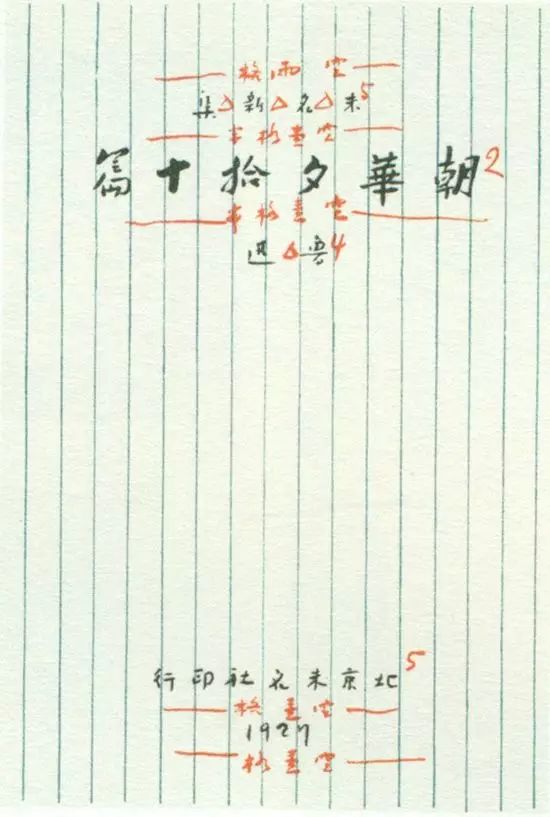 空兩格
5未△名△新△集
空壹格半
2朝華夕拾十篇
空壹格半
4魯△迅
5北京未名社印行
空壹格
1927
空壹格